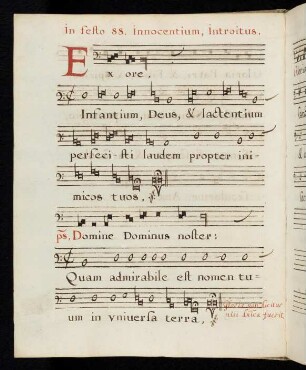 In festo SS. Innocentium, Introitus.
Ex ore.
Infantium, Deus, & lactentium
perfeci-sti laudem propter ini-
micos tuos.
ps. Domine Dominus noster:
Quam admirabile est nomen tu-
um in vniuersa terra,
Gloria non dicitur